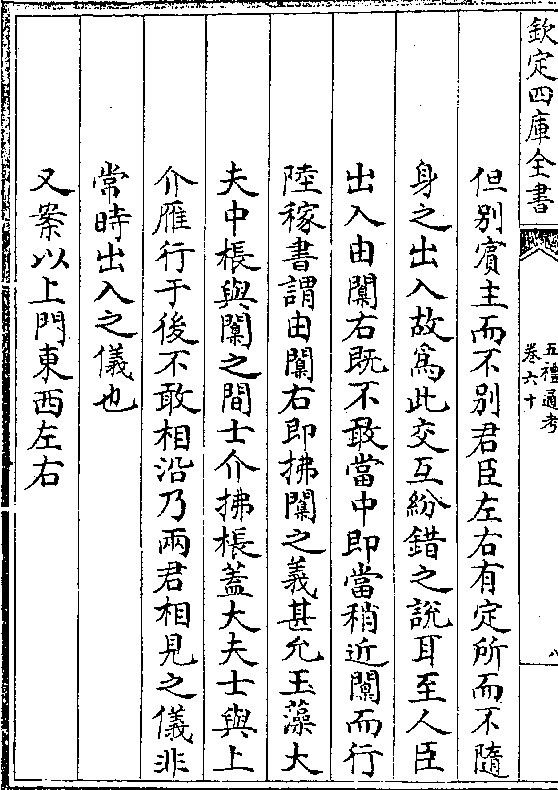 欽定四庫全書
五禮通考
卷六十
八
但別賓主而不別君臣左右有定所而不隨
身之出入故為此交互紛錯之說耳至人臣
出入由闑右既不敢當中即當稍近闑而行
陸稼書謂由闑右即拂闑之義甚允玉藻大
夫中棖與闑之間士介拂棖蓋大夫士與上
介雁行于後不敢相沿乃兩君相見之儀非
常時出入之儀也
又案以上門東西左右